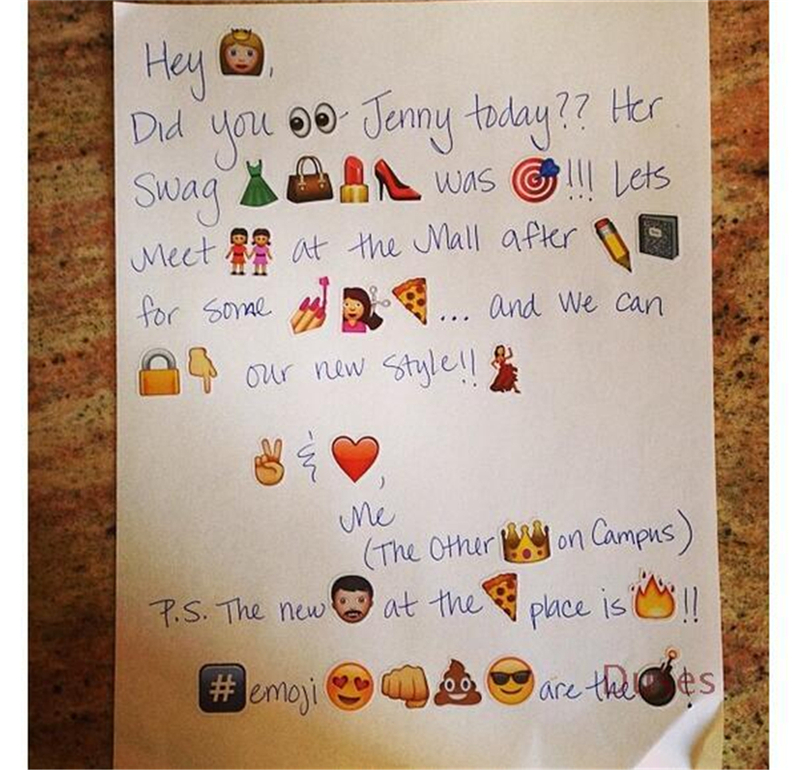 Hey 👸,
Did you 👀 Jenny today?? Her
Swag 👗👜💄👠 was 🎯!!! Lets
Meet 👭 at the Mall after ✏️📓
for some 💅💇🍕... and we can
🔒👇 our new style!! 💃
✌️ & ❤️,
Me
(The Other 👑 on Campus)
P.S. The new 👨 at the 🍕 place is 🔥!!
#️⃣emoji 😍👊💩😎 are the 💣!